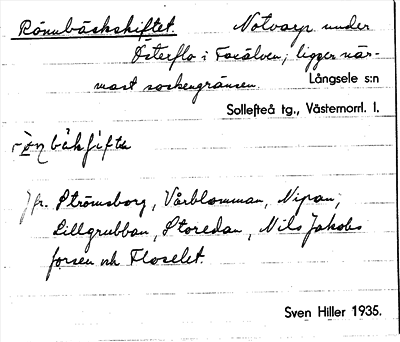 Rönnbäckskiftet. Notvarp under
Österflo i Faxälven; ligger när-
mast sockengränsen. Långsele s:n
Sollefteå tg., Västernorrl. l.
Jfr. Strömsborg, Vårblomman, Nipan,
Lillgrubban, Storedan, Nils Jakobs
forsen och Floselet.
Sven Hiller 1935.